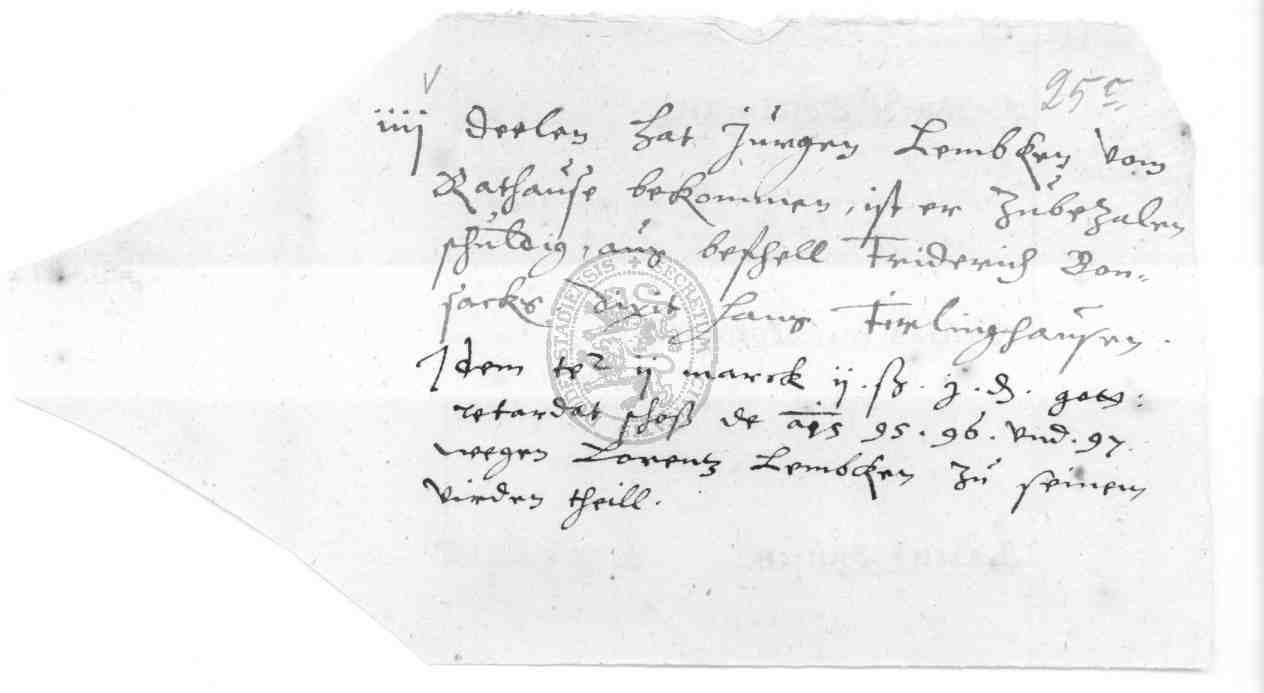 25c
iiij deelen hat Jürgen Lembken vom
Rathause bekommen, ist er Zubezalen
schüldig, auß beschell Friderich Bon-
sacks, dixit Hans Ferlinghausen.
Idem ij marck ij. ß. j. d.
retardat schoß de 95. 96. Vnd. 97.
wegen Lorentz Lembken Zu seinem
virden theill.
SECRETUM